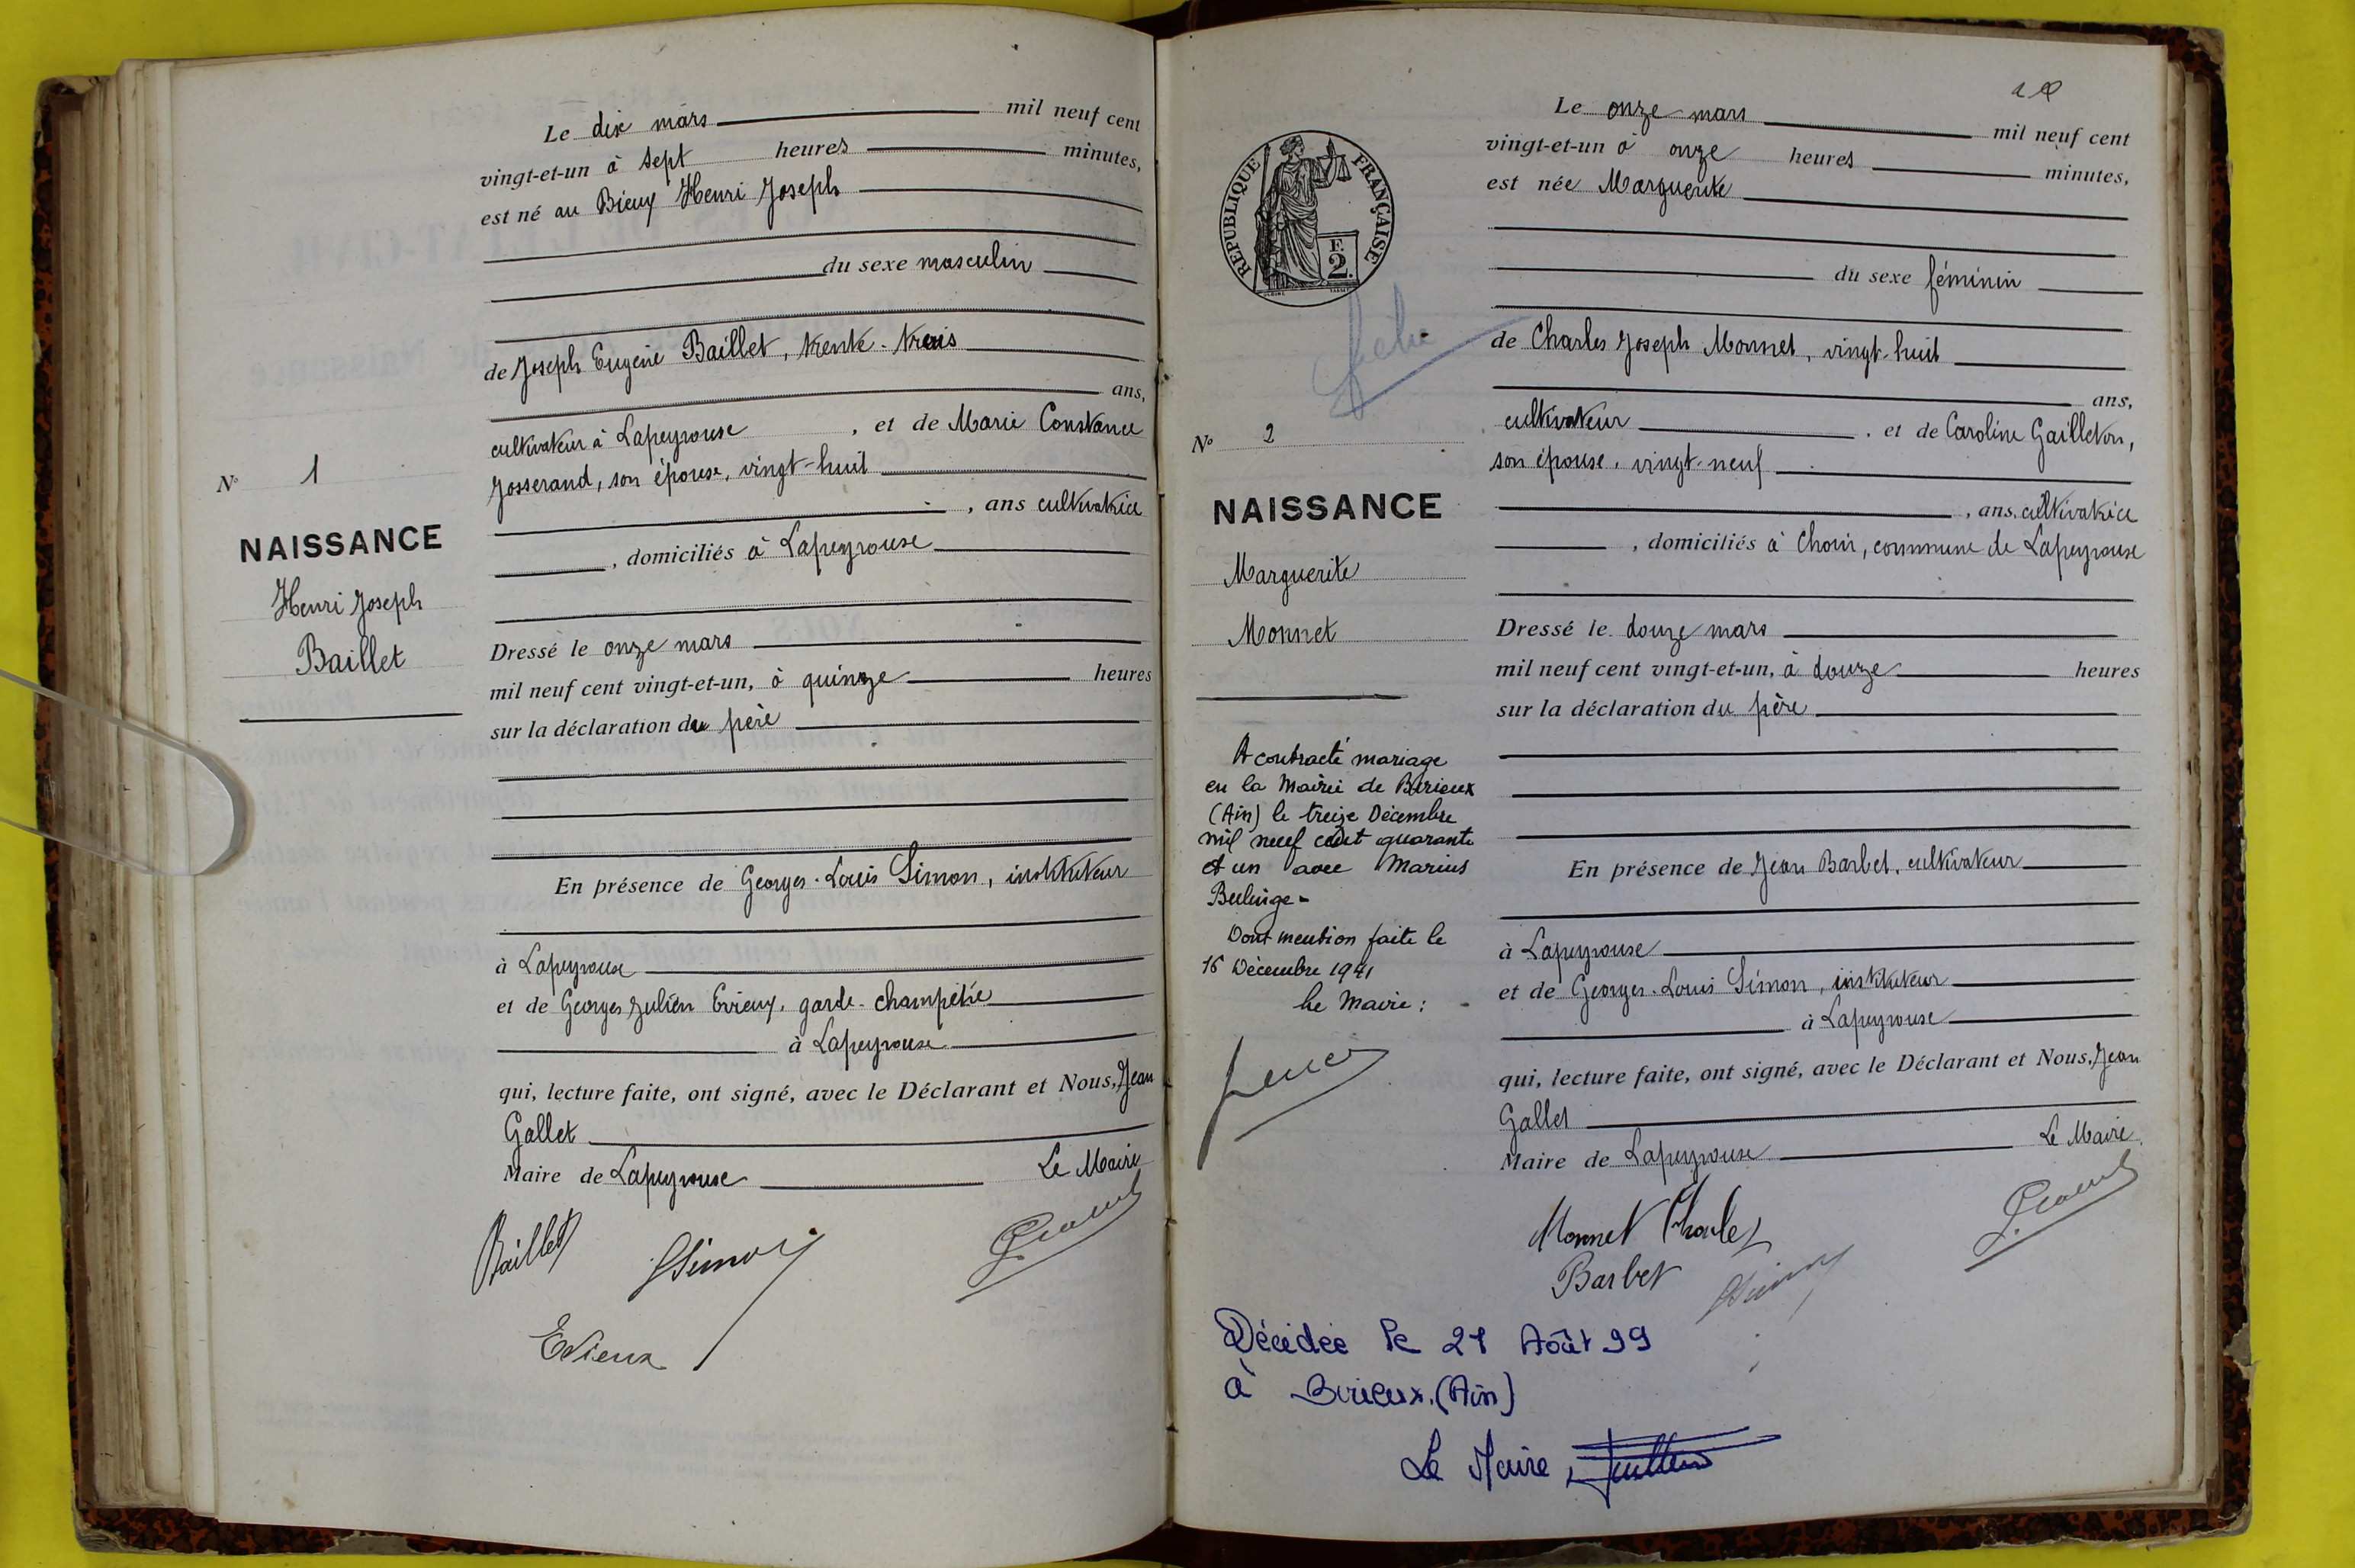 Le dix mars mil neuf cent
vingt-et-un à sept heures minutes,
est né au Bieux Henri Joseph
du sexe masculin
de Joseph Eugène Baillet, trente-trois
ans,
cultivateur à Lapeyrouse, et de Marie Constance
Josserand, son épouse, vingt-huit
, ans cultivatrice
, domiciliés à Lapeyrouse
Nº 1
NAISSANCE
Henri Joseph
Baillet
Dressé le onze mars
mil neuf cent vingt-et-un, à quinze heures
sur la déclaration du père
En présence de Georges-Louis Simon, instituteur
à Lapeyrouse
et de Georges Julien Evieux, garde-champêtre
à Lapeyrouse
qui, lecture faite, ont signé, avec le Déclarant et Nous, Jean
Gallet
Maire de Lapeyrouse Le Maire
Baillet GSimon
Evieux
Le onze mars mil neuf cent
vingt-et-un à onze heures minutes,
est née Marguerite
du sexe féminin
de Charles Joseph Monnet, vingt-huit
ans,
cultivateur, et de Caroline Gailleton,
son épouse, vingt-neuf
, ans, cultivatrice
, domiciliés à Choin, commune de Lapeyrouse
REPUBLIQUE FRANÇAISE
F.
2.
Nº 2
NAISSANCE
Marguerite
Monnet
A contracté mariage
en la Mairie de Birieux
(Ain) le treize Décembre
mil neuf cent quarante
et un avec Marius
Dont mention faite le
16 Décembre 1941
Le Maire :
Dressé le douze mars
mil neuf cent vingt-et-un, à douze heures
sur la déclaration du père
En présence de Jean Barbet, cultivateur
à Lapeyrouse
et de Georges-Louis Simon, instituteur
à Lapeyrouse
qui, lecture faite, ont signé, avec le Déclarant et Nous, Jean
Gallet
Maire de Lapeyrouse Le Maire
Monnet Charles
Barbet GSimon
Décédée le 21 Août 99
à Birieux. (Ain)
Le Maire